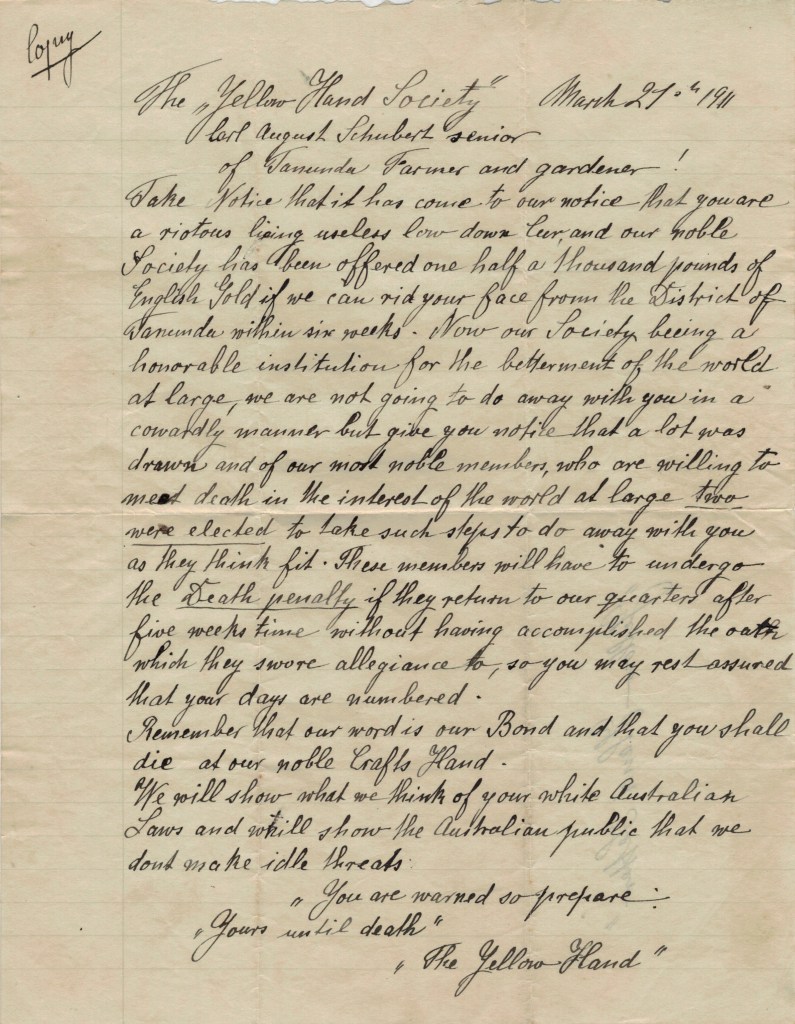 Copy
The „Yellow Hand Society" March 27th 1911
Carl August Schubert senior
of Tanunda Farmer and gardener!
Take Notice that it has come to our notice that you are
a riotous living useless low down Cur, and our noble
Society has been offered one half a thousand pounds of
English Gold if we can rid your face from the District of
Tanunda within six weeks. Now our Society beeing a
honorable institution for the betterment of the world
at large, we are not going to do away with you in a
cowardly manner but give you notice that a lot was
drawn and of our most noble members, who are willing to
meet death in the interest of the world at large two
were elected to take such steps to do away with you
as they think fit. These members will have to undergo
the Death penalty if they return to our quarters after
five weeks time without having accomplished the oath
which they swore allegiance to, so you may rest assured
that your days are numbered.
Remember that our word is our Bond and that you shall
die at our noble Crafts Hand.
We will show what we think of your white Australian
Laws and will show the Australian public that we
dont make idle threats.
„ You are warned so prepare:
„Yours until death"
„ The Yellow Hand "